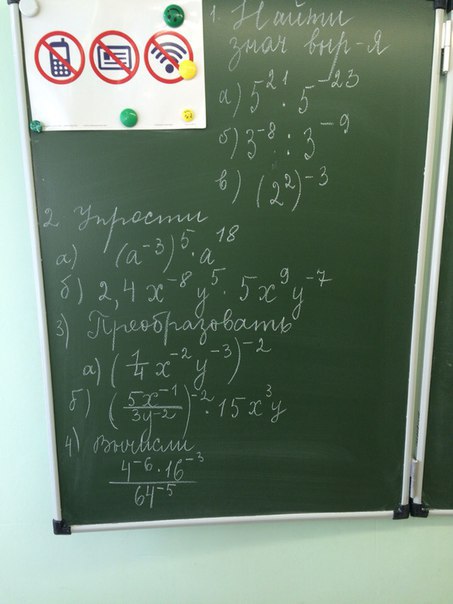 1. Найти
знач выр-я
а) 5²¹ · 5⁻²³
б) 3⁻⁸ : 3⁻⁹
в) (2²)⁻³
2 Упрости
а) (a⁻³)⁵ · a¹⁸
б) 2,4x⁻⁸y⁵ · 5x⁹y⁻⁷
3) Преобразовать
а) (1/4 x⁻²y⁻³)⁻²
б) (5x⁻¹/3y⁻²)⁻² · 15x³y
4) Вычисли
4⁻⁶ · 16⁻³
64⁻⁵